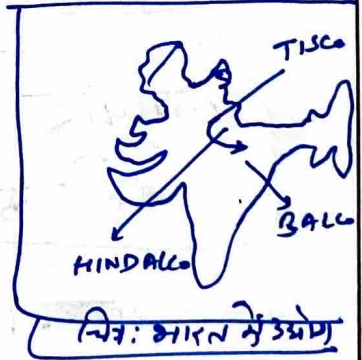 TISCo
BALCo
HINDALCo
चित्र: भारत में उद्योग